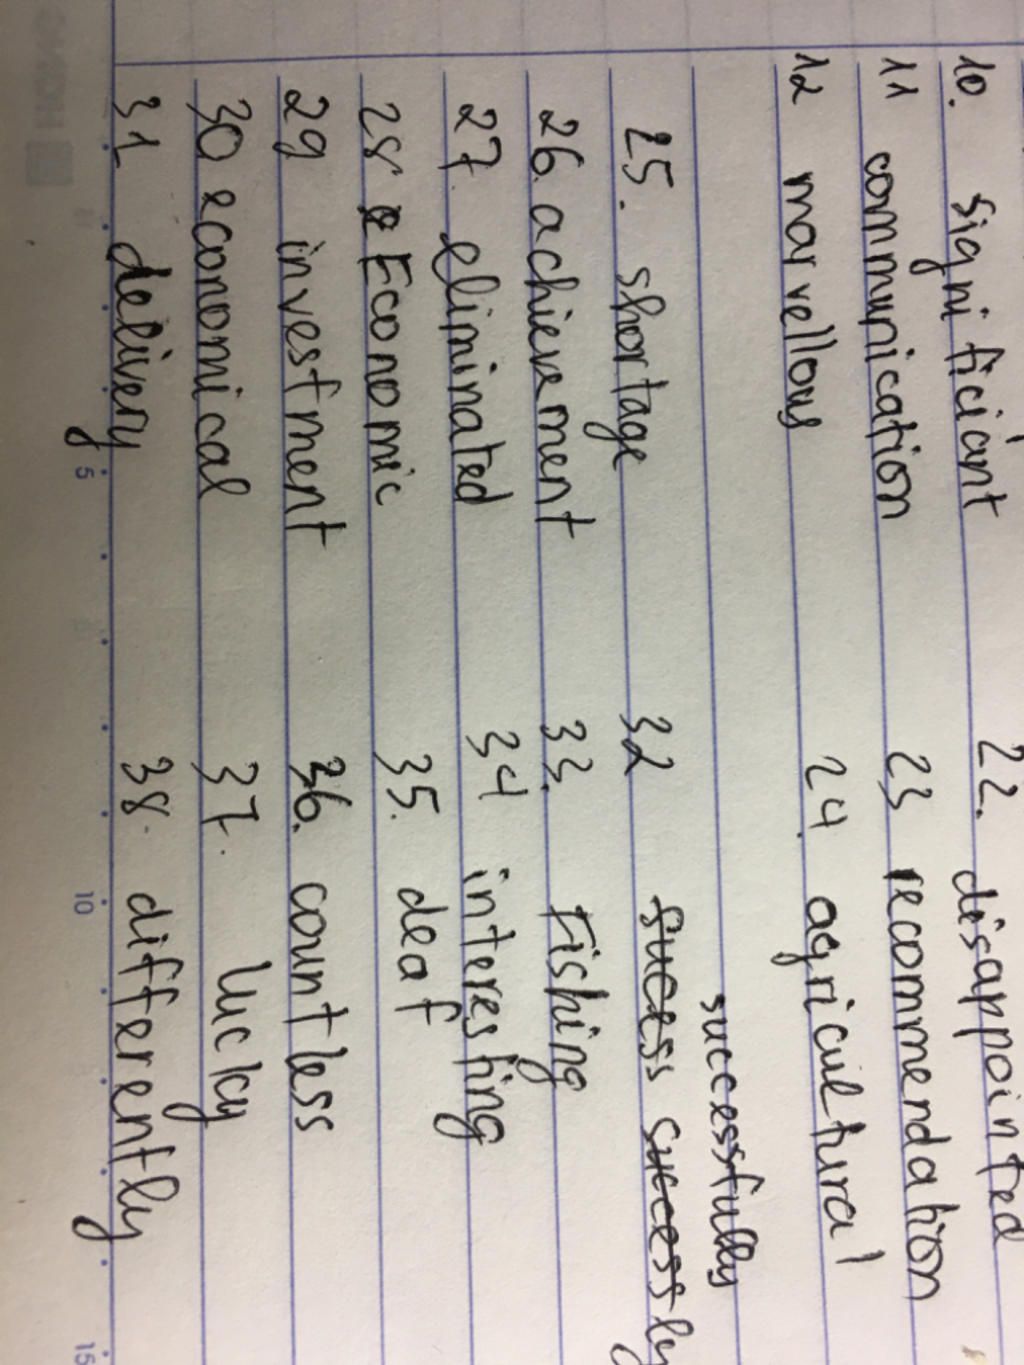 10. significiant 22. disappointed
11 communication 23 recommendation
12 marvellous 24. agricultural
successfully
25. shortage 32 sucess successly
26. achievement 33. Fishing
27 eliminated 34 interesting
28 Economic 35. deaf
29 investment 36. countless
30 economical 37. lucky
31 delivery 38. differently
5 10 15